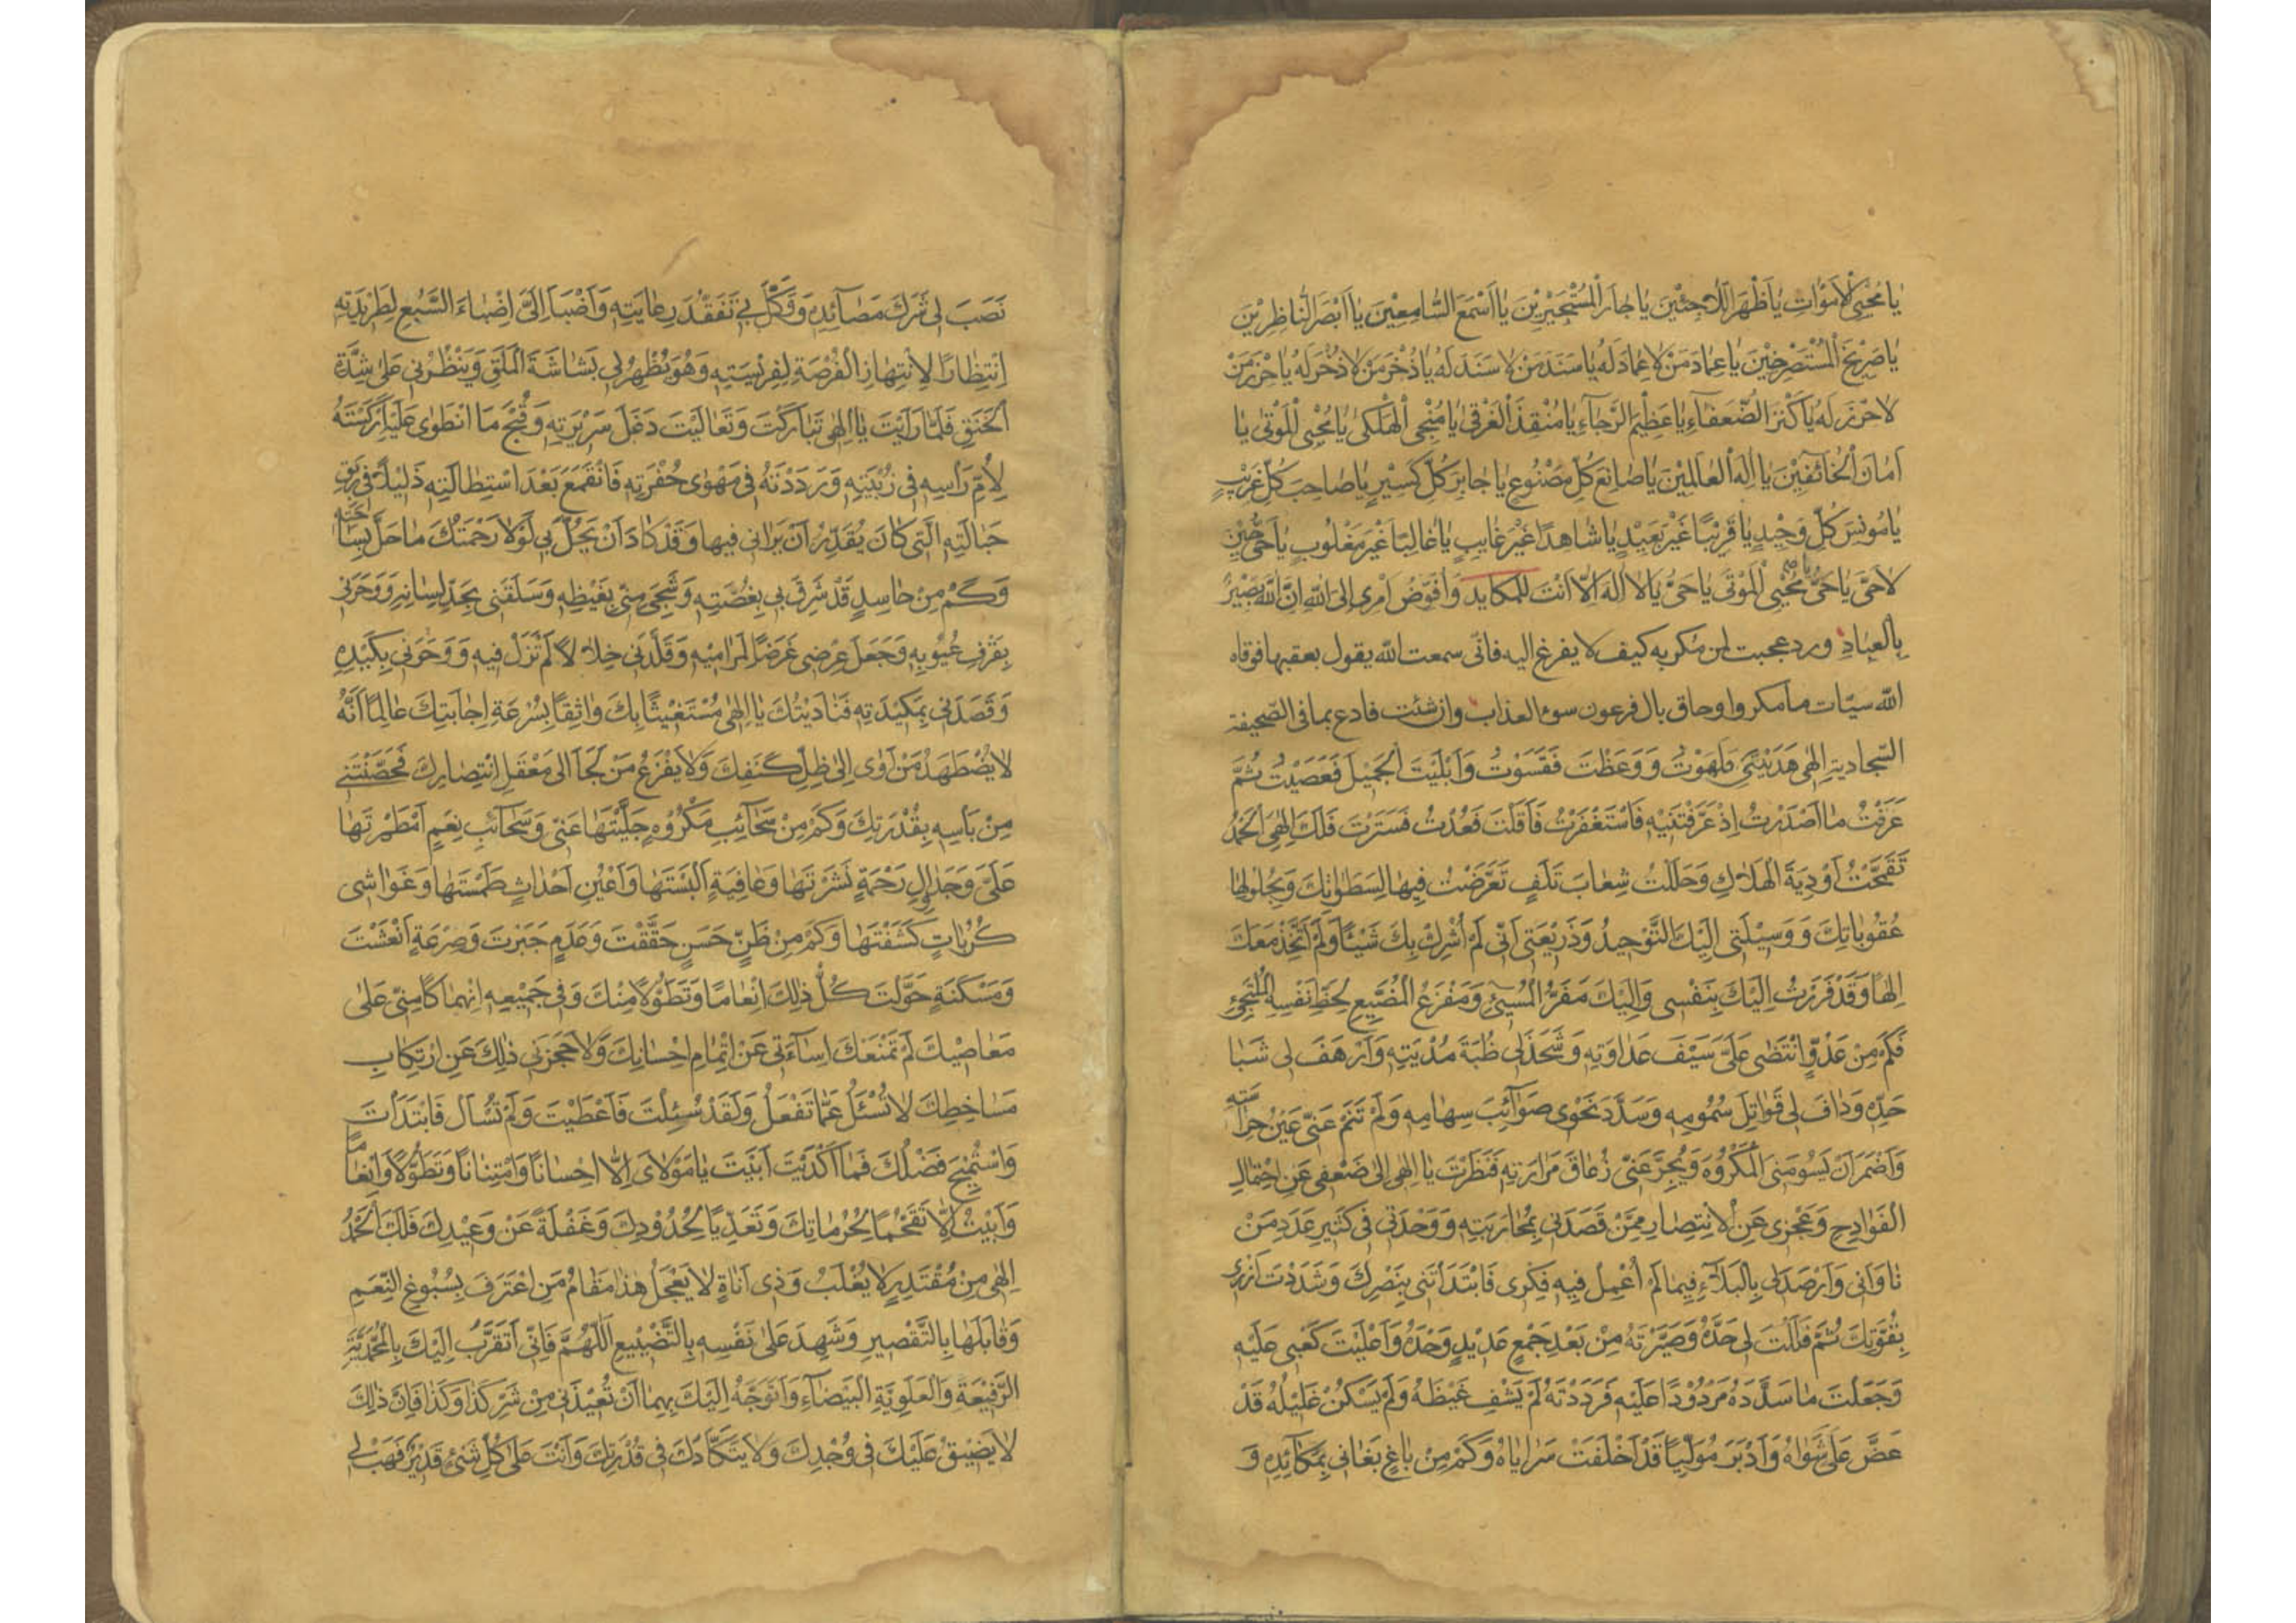 يَا مُحْيِيَ الْأَمْوَاتِ يَا ظَهْرَ اللَّاجِئِينَ يَا جَارَ الْمُسْتَجِيرِينَ يَا أَسْمَعَ السَّامِعِينَ يَا أَبْصَرَ النَّاظِرِينَ
يَا صَرِيخَ الْمُسْتَصْرِخِينَ يَا عِمَادَ مَنْ لَا عِمَادَ لَهُ يَا سَنَدَ مَنْ لَا سَنَدَ لَهُ يَا ذُخْرَ مَنْ لَا ذُخْرَ لَهُ يَا حِرْزَ مَنْ
لَا حِرْزَ لَهُ يَا كَنْزَ الضُّعَفَاءِ يَا عَظِيمَ الرَّجَاءِ يَا مُنْقِذَ الْغَرْقَى يَا مُنْجِيَ الْهَلْكَى يَا مُحْيِيَ الْمَوْتَى يَا
أَمَانَ الْخَائِفِينَ يَا إِلَهَ الْعَالَمِينَ يَا صَانِعَ كُلِّ مَصْنُوعٍ يَا جَابِرَ كُلِّ كَسِيرٍ يَا صَاحِبَ كُلِّ غَرِيبٍ
يَا مُونِسَ كُلِّ وَحِيدٍ يَا قَرِيبًا غَيْرَ بَعِيدٍ يَا شَاهِدًا غَيْرَ غَايِبٍ يَا غَالِبًا غَيْرَ مَغْلُوبٍ يَا حَيُّ حِينَ
لَا حَيَّ يَا حَيُّ يَا مُحْيِيَ الْمَوْتَى يَا حَيُّ يَا لَا إِلَهَ إِلَّا أَنْتَ للمكايد وَأُفَوِّضُ أَمْرِي إِلَى اللَّهِ إِنَّ اللَّهَ بَصِيرٌ
بِالْعِبَادِ ورد عجبت لمن مكر به كيف لا يفزع اليه فانى سمعت الله يقول بعقبها فوقاه
الله سيّات ما مكروا وحاق بال فرعون سوء العذاب وان شئت فادع بما فى الصّحيفة
السّجادية إِلَهِي هَدَيْتَنِي فَلَهَوْتُ وَوَعَظْتَ فَقَسَوْتُ وَأَبْلَيْتَ الْجَمِيلَ فَعَصَيْتُ ثُمَّ
عَرَفْتُ مَا أَصْدَرْتُ إِذْ عَرَّفْتَنِيهِ فَاسْتَغْفَرْتُ فَأَقَلْتَ فَعُدْتُ فَسَتَرْتَ فَلَكَ إِلَهِي الْحَمْدُ
تَقَحَّمْتُ أَوْدِيَةَ الْهَلَاكِ وَحَلَلْتُ شِعَابَ تَلَفٍ تَعَرَّضْتُ فِيهَا لِسَطَوَاتِكَ وَبِحُلُولِهَا
عُقُوبَاتِكَ وَوَسِيلَتِي إِلَيْكَ التَّوْحِيدُ وَذَرِيعَتِي أَنِّي لَمْ أُشْرِكْ بِكَ شَيْئًا وَلَمْ أَتَّخِذْ مَعَكَ
إِلَهًا وَقَدْ فَرَرْتُ إِلَيْكَ بِنَفْسِي وَإِلَيْكَ مَفَرُّ الْمُسِيءِ وَمَفْزَعُ الْمُضَيِّعِ لِحَظِّ نَفْسِهِ الْمُلْتَجِئِ
فَكَمْ مِنْ عَدُوٍّ انْتَضَى عَلَيَّ سَيْفَ عَدَاوَتِهِ وَشَحَذَ لِي ظُبَةَ مُدْيَتِهِ وَأَرْهَفَ لِي شَبَا
حَدِّهِ وَدَافَ لِي قَوَاتِلَ سُمُومِهِ وَسَدَّدَ نَحْوِي صَوَائِبَ سِهَامِهِ وَلَمْ تَنَمْ عَنِّي عَيْنُ حِرَاسَتِهِ
وَأَضْمَرَ أَنْ يَسُومَنِي الْمَكْرُوهَ وَيُجَرِّعَنِي زُعَاقَ مَرَارَتِهِ فَنَظَرْتَ يَا إِلَهِي إِلَى ضَعْفِي عَنِ احْتِمَالِ
الْفَوَادِحِ وَعَجْزِي عَنِ الْانْتِصَارِ مِمَّنْ قَصَدَنِي بِمُحَارَبَتِهِ وَوَحْدَتِي فِي كَثِيرِ عَدَدِ مَنْ
نَاوَانِي وَأَرْصَدَ لِي بِالْبَلَاءِ فِيمَا لَمْ أُعْمِلْ فِيهِ فِكْرِي فَابْتَدَأْتَنِي بِنَصْرِكَ وَشَدَدْتَ أَزْرِي
بِقُوَّتِكَ ثُمَّ فَلَلْتَ لِي حَدَّهُ وَصَيَّرْتَهُ مِنْ بَعْدِ جَمْعٍ عَدِيدٍ وَحْدَهُ وَأَعْلَيْتَ كَعْبِي عَلَيْهِ
وَجَعَلْتَ مَا سَدَّدَهُ مَرْدُودًا عَلَيْهِ فَرَدَدْتَهُ لَمْ يَشْفِ غَيْظَهُ وَلَمْ يَسْكُنْ غَلِيلُهُ قَدْ
عَضَّ عَلَى شَوَاهُ وَأَدْبَرَ مُوَلِّيًا قَدْ أَخْلَفَتْ سَرَايَاهُ وَكَمْ مِنْ بَاغٍ بَغَانِي بِمَكَائِدِهِ وَ
نَصَبَ لِي شَرَكَ مَصَائِدِهِ وَوَكَّلَ بِي تَفَقُّدَ رِعَايَتِهِ وَأَضْبَأَ إِلَيَّ إِضْبَاءَ السَّبُعِ لِطَرِيدَتِهِ
انْتِظَارًا لِانْتِهَازِ الْفُرْصَةِ لِفَرِيسَتِهِ وَهُوَ يُظْهِرُ لِي بَشَاشَةَ الْمَلَقِ وَيَنْظُرُنِي عَلَى شِدَّةِ
الْحَنَقِ فَلَمَّا رَأَيْتَ يَا إِلَهِي تَبَارَكْتَ وَتَعَالَيْتَ دَغَلَ سَرِيرَتِهِ وَقُبْحَ مَا انْطَوَى عَلَيْهِ أَرْكَسْتَهُ
لِأُمِّ رَأْسِهِ فِي زُبْيَتِهِ وَرَدَدْتَهُ فِي مَهْوَى حُفْرَتِهِ فَانْقَمَعَ بَعْدَ اسْتِطَالَتِهِ ذَلِيلًا فِي رِبَقِ
حِبَالَتِهِ الَّتِي كَانَ يُقَدِّرُ أَنْ يَرَانِي فِيهَا وَقَدْ كَادَ أَنْ يَحُلَّ بِي لَوْلَا رَحْمَتُكَ مَا حَلَّ بِسَاحَتِهِ
وَكَمْ مِنْ حَاسِدٍ قَدْ شَرِقَ بِي بِغُصَّتِهِ وَشَجِيَ مِنِّي بِغَيْظِهِ وَسَلَقَنِي بِحَدِّ لِسَانِهِ وَوَحَرَنِي
بِقَرْفِ عُيُوبِهِ وَجَعَلَ عِرْضِي غَرَضًا لِمَرَامِيهِ وَقَلَّدَنِي خِلَالًا لَمْ تَزَلْ فِيهِ وَوَحَرَنِي بِكَيْدِهِ
وَقَصَدَنِي بِمَكِيدَتِهِ فَنَادَيْتُكَ يَا إِلَهِي مُسْتَغِيثًا بِكَ وَاثِقًا بِسُرْعَةِ إِجَابَتِكَ عَالِمًا أَنَّهُ
لَا يُضْطَهَدُ مَنْ آوَى إِلَى ظِلِّ كَنَفِكَ وَلَا يَفْزَعُ مَنْ لَجَأَ إِلَى مَعْقَلِ انْتِصَارِكَ فَحَصَّنْتَنِي
مِنْ بَأْسِهِ بِقُدْرَتِكَ وَكَمْ مِنْ سَحَائِبِ مَكْرُوهٍ جَلَّيْتَهَا عَنِّي وَسَحَائِبِ نِعَمٍ أَمْطَرْتَهَا
عَلَيَّ وَجَدَاوِلِ رَحْمَةٍ نَشَرْتَهَا وَعَافِيَةٍ أَلْبَسْتَهَا وَأَعْيُنِ أَحْدَاثٍ طَمَسْتَهَا وَغَوَاشِي
كُرُبَاتٍ كَشَفْتَهَا وَكَمْ مِنْ ظَنٍّ حَسَنٍ حَقَّقْتَ وَعَدَمٍ جَبَرْتَ وَصِرْعَةٍ أَنْعَشْتَ
وَمَسْكَنَةٍ حَوَّلْتَ كُلُّ ذَلِكَ إِنْعَامًا وَتَطَوُّلًا مِنْكَ وَفِي جَمِيعِهِ انْهِمَاكًا مِنِّي عَلَى
مَعَاصِيكَ لَمْ تَمْنَعْكَ إِسَاءَتِي عَنْ إِتْمَامِ إِحْسَانِكَ وَلَا حَجَزَنِي ذَلِكَ عَنِ ارْتِكَابِ
مَسَاخِطِكَ لَا تُسْئَلُ عَمَّا تَفْعَلُ وَلَقَدْ سُئِلْتَ فَأَعْطَيْتَ وَلَمْ تُسْأَلْ فَابْتَدَأْتَ
وَاسْتُمِيحَ فَضْلُكَ فَمَا أَكْدَيْتَ أَبَيْتَ يَا مَوْلَايَ إِلَّا إِحْسَانًا وَامْتِنَانًا وَتَطَوُّلًا وَإِنْعَامًا
وَأَبَيْتُ إِلَّا تَقَحُّمًا لِحُرُمَاتِكَ وَتَعَدِّيًا لِحُدُودِكَ وَغَفْلَةً عَنْ وَعِيدِكَ فَلَكَ الْحَمْدُ
إِلَهِي مِنْ مُقْتَدِرٍ لَا يُغْلَبُ وَذِي أَنَاةٍ لَا يَعْجَلُ هَذَا مَقَامُ مَنِ اعْتَرَفَ بِسُبُوغِ النِّعَمِ
وَقَابَلَهَا بِالتَّقْصِيرِ وَشَهِدَ عَلَى نَفْسِهِ بِالتَّضْيِيعِ اللَّهُمَّ فَإِنِّي أَتَقَرَّبُ إِلَيْكَ بِالْمُحَمَّدِيَّةِ
الرَّفِيعَةِ وَالْعَلَوِيَّةِ الْبَيْضَاءِ وَأَتَوَجَّهُ إِلَيْكَ بِهِمَا أَنْ تُعِيذَنِي مِنْ شَرِّ كَذَا وَكَذَا فَإِنَّ ذَلِكَ
لَا يَضِيقُ عَلَيْكَ فِي وُجْدِكَ وَلَا يَتَكَأَّدُكَ فِي قُدْرَتِكَ وَأَنْتَ عَلَى كُلِّ شَيْءٍ قَدِيرٌ فَهَبْ لِي